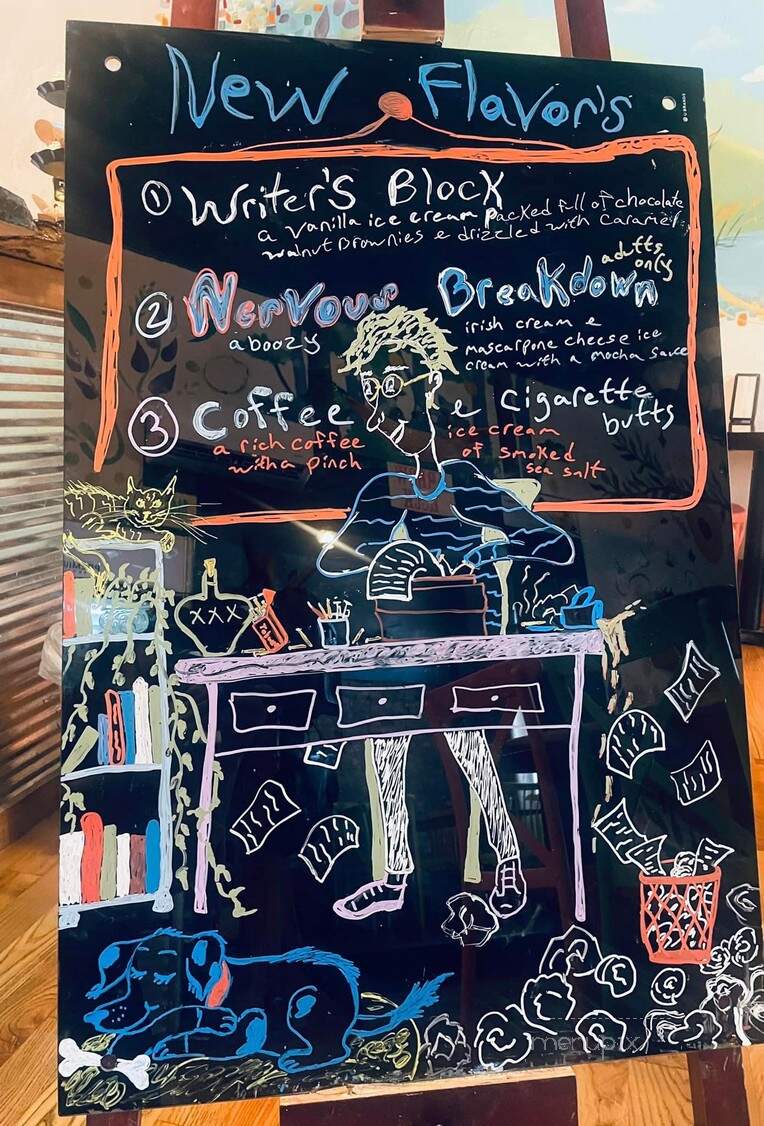 New Flavor's
① Writer's Block
a vanilla ice cream packed full of chocolate
walnut Brownies & drizzled with caramel
② Nervous Breakdown adults only
a boozy irish cream &
mascarpone cheese ice
cream with a mocha sauce
③ Coffee & cigarette butts
a rich coffee ice cream
with a pinch of smoked
sea salt
XXX
menupix